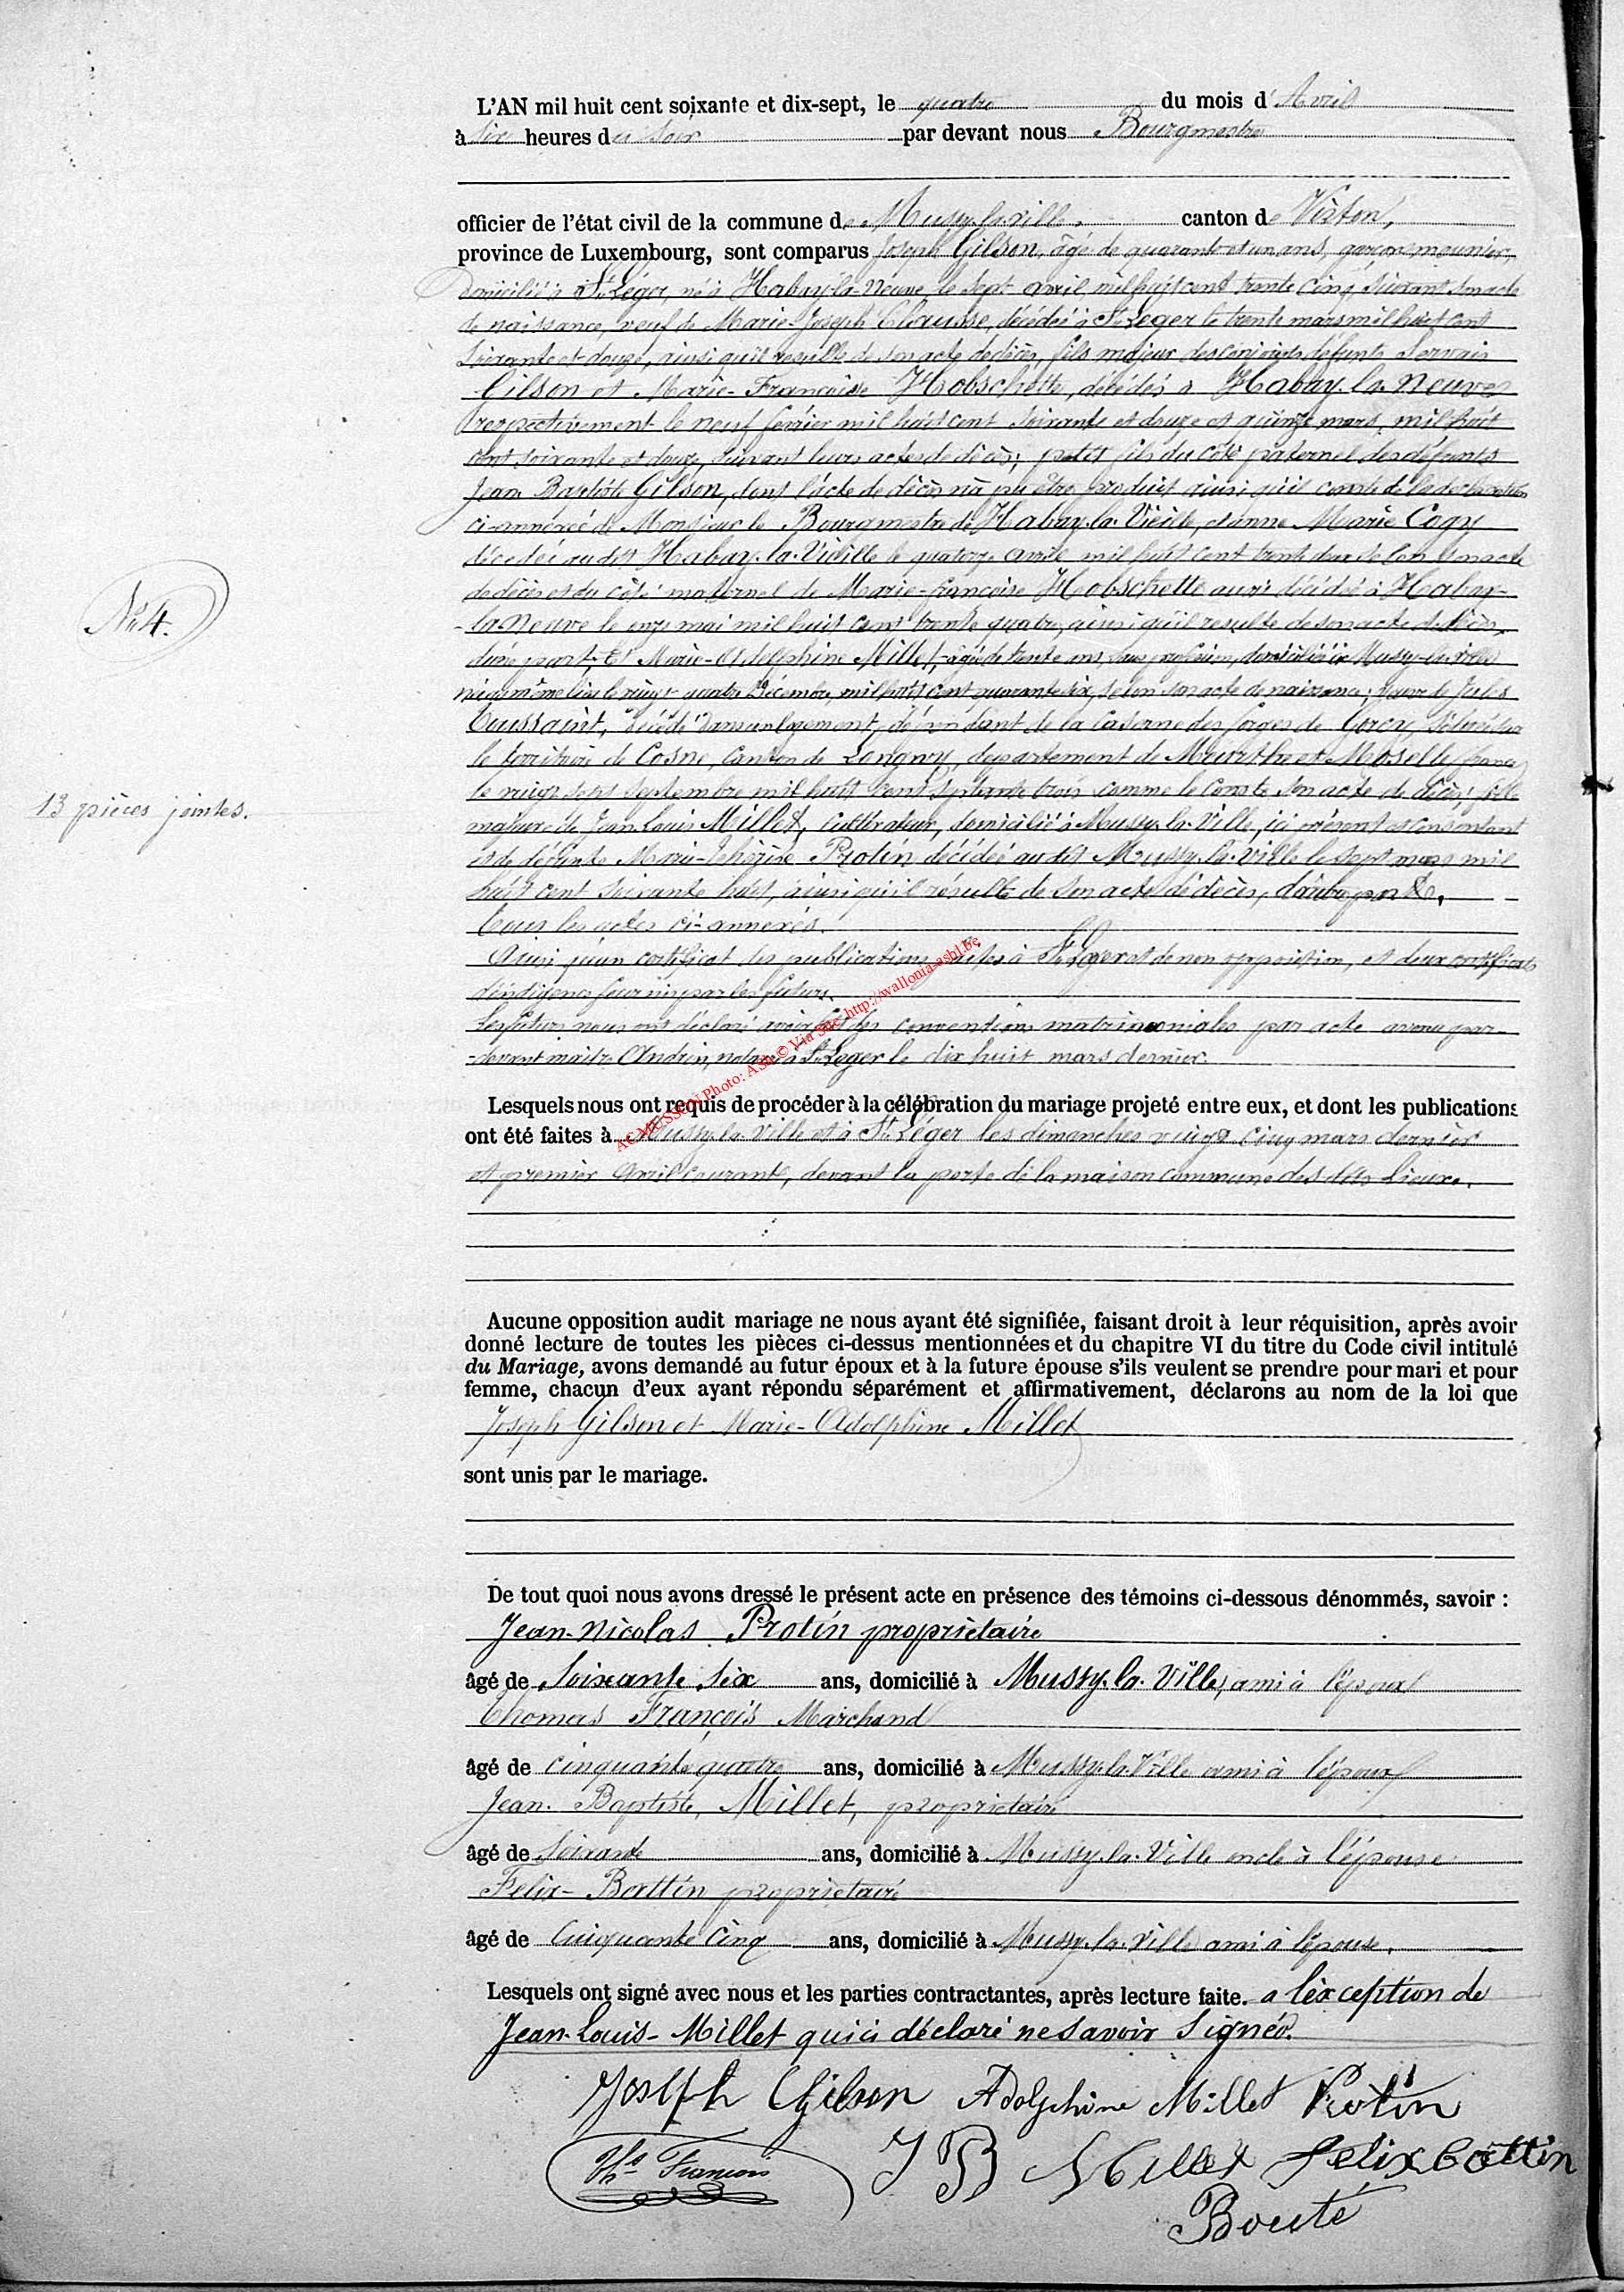 L'AN mil huit cent soixante et dix-sept, le quatre du mois d'Avril
à six heures du soir par devant nous Bourgmestre
officier de l'état civil de la commune de Mussy-la-ville, canton de Virton,
province de Luxembourg, sont comparus Joseph Gilson, âgé de quarante et un ans, garçon meunier,
domicilié à St Léger, né à Habay-la-Neuve le sept avril mil huit cent trente cinq, suivant son acte
de naissance, veuf de Marie-Joseph Clausse, décédée à St Leger le trente mars mil huit cent
soixante et douze, ainsi qu'il resulte de son acte de décès, fils majeur des conjoints défunts Servais
Gilson et Marie-Françoise Hobschette, décédés à Habay-la-Neuve
respectivement le neuf février mil huit cent soixante et douze et quinze mars mil huit
cent soixante et douze, suivant leurs actes de décès; petit fils du côté paternel des défunts
Jean Baptiste Gilson, dont l'acte de décès n'a pu être produit ainsi qu'il conste de la déclaration
ci-annexée de Monsieur le Bourgmestre de Habay-la-Vieille, et anne Marie Cogy
décédée au dit Habay-la-Vieille le quatorze avril mil huit cent trente deux selon son acte
de décès et du côté maternel de Marie-françoise Hobschette aussi décédée à Habay-
-la Neuve le onze mai mil huit cent trente quatre, ainsi qu'il resulte de son acte de décès,
d'une part; Et Marie-Adolphine Millet, âgée de trente ans, sans profession, domiciliée à Mussy-la-ville
née au même lieu le vingt quatre Décembre mil huit cent quarante six, selon son acte de naissance; veuve de Jules
Toussaint, décédé dans un logement dépendant de la Caserne des forges de Gorcy, situé sur
le territoire de Cosne, Canton de Longwy, departement de Meurthe et Moselle, france
le vingt sept septembre mil huit cent septante trois comme le Conste son acte de décès; fille
majeure de Jean Louis Millet, Cultivateur, domicilié à Mussy-la-Ville, ici présent et consentant
et de défunte Marie-Thérèse Protin décédée au dit Mussy-la-Ville le sept mars mil
huit cent soixante huit, ainsi qu'il résulte de son acte de décès, d'autre part,
tous les actes ci-annexés.
Ainsi qu'un certificat des publications faites à St Léger et de non opposition, et deux certificats
d'indigence fourni par les futurs.
Les futurs nous ont déclaré avoir fait les conventions matrimoniales par acte avenu par-
-devant maître Andrin, notaire à St Leger le dix huit mars dernier.
No 4.
13 pièces jointes.
AC MUSSON Photo: ASh © Via Site http://wallonia-asbl.be
Lesquels nous ont requis de procéder à la célébration du mariage projeté entre eux, et dont les publications
ont été faites à Mussy-la-Ville et à St Léger les dimanches vingt cinq mars dernier
et premier Avril courant, devant la porte de la maison commune des dits Lieux.
Aucune opposition audit mariage ne nous ayant été signifiée, faisant droit à leur réquisition, après avoir
donné lecture de toutes les pièces ci-dessus mentionnées et du chapitre VI du titre du Code civil intitulé
du Mariage, avons demandé au futur époux et à la future épouse s'ils veulent se prendre pour mari et pour
femme, chacun d'eux ayant répondu séparément et affirmativement, déclarons au nom de la loi que
Joseph Gilson et Marie-Adolphine Millet
sont unis par le mariage.
De tout quoi nous avons dressé le présent acte en présence des témoins ci-dessous dénommés, savoir :
Jean-Nicolas Protin propriétaire
âgé de Soixante six ans, domicilié à Mussy-la-Ville, ami à l'époux
Thomas François Marchand
âgé de cinquante quatre ans, domicilié à Mussy-la-Ville ami à l'époux
Jean-Baptiste, Millet, propriétaire
âgé de Soixante ans, domicilié à Mussy-la-Ville oncle à l'épouse
Felix-Bottin propriétaire
âgé de Cinquante Cinq ans, domicilié à Mussy-la-Ville ami à l'épouse,
Lesquels ont signé avec nous et les parties contractantes, après lecture faite. a l'exception de
Jean-Louis-Millet qui a déclaré ne savoir signer.
Joseph Gilson Adolphine Millet Protin
Ths François J B Millet Felix bottin
Bouté